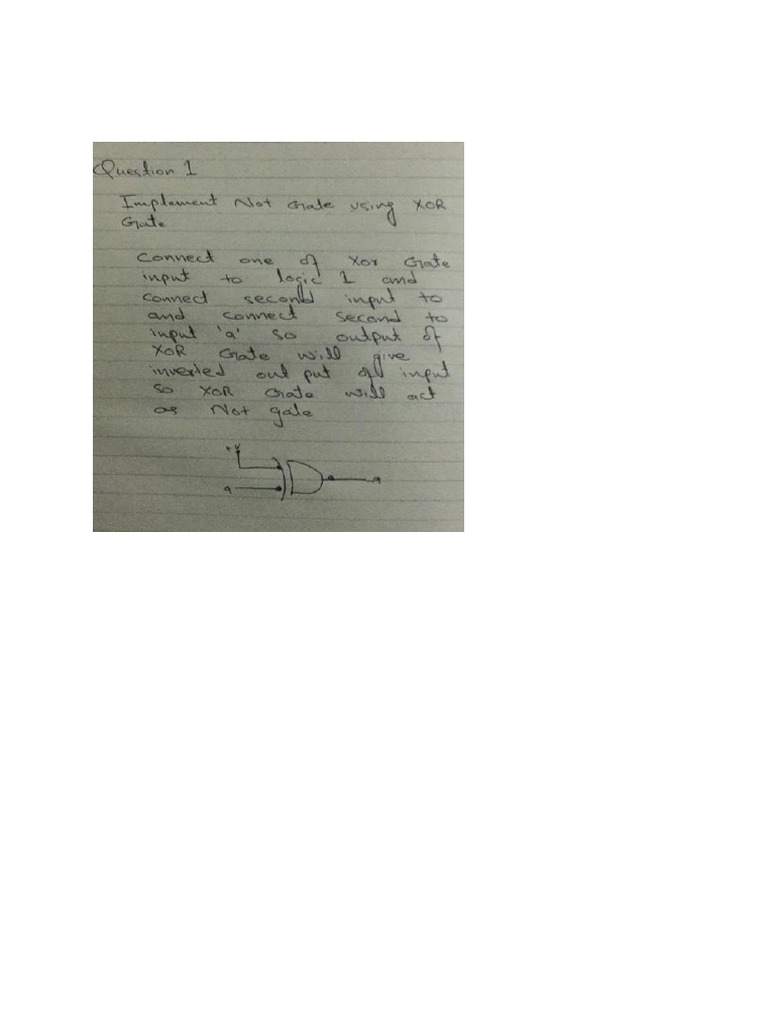 Question 1
Implement Not Gate using XOR
Gate
Connect one of Xor Gate
input to logic 1 and
connect second input to
and connect second to
input 'a' so output of
XOR Gate will give
inverted out put of input
so XOR Gate will act
as Not gate
+v
a